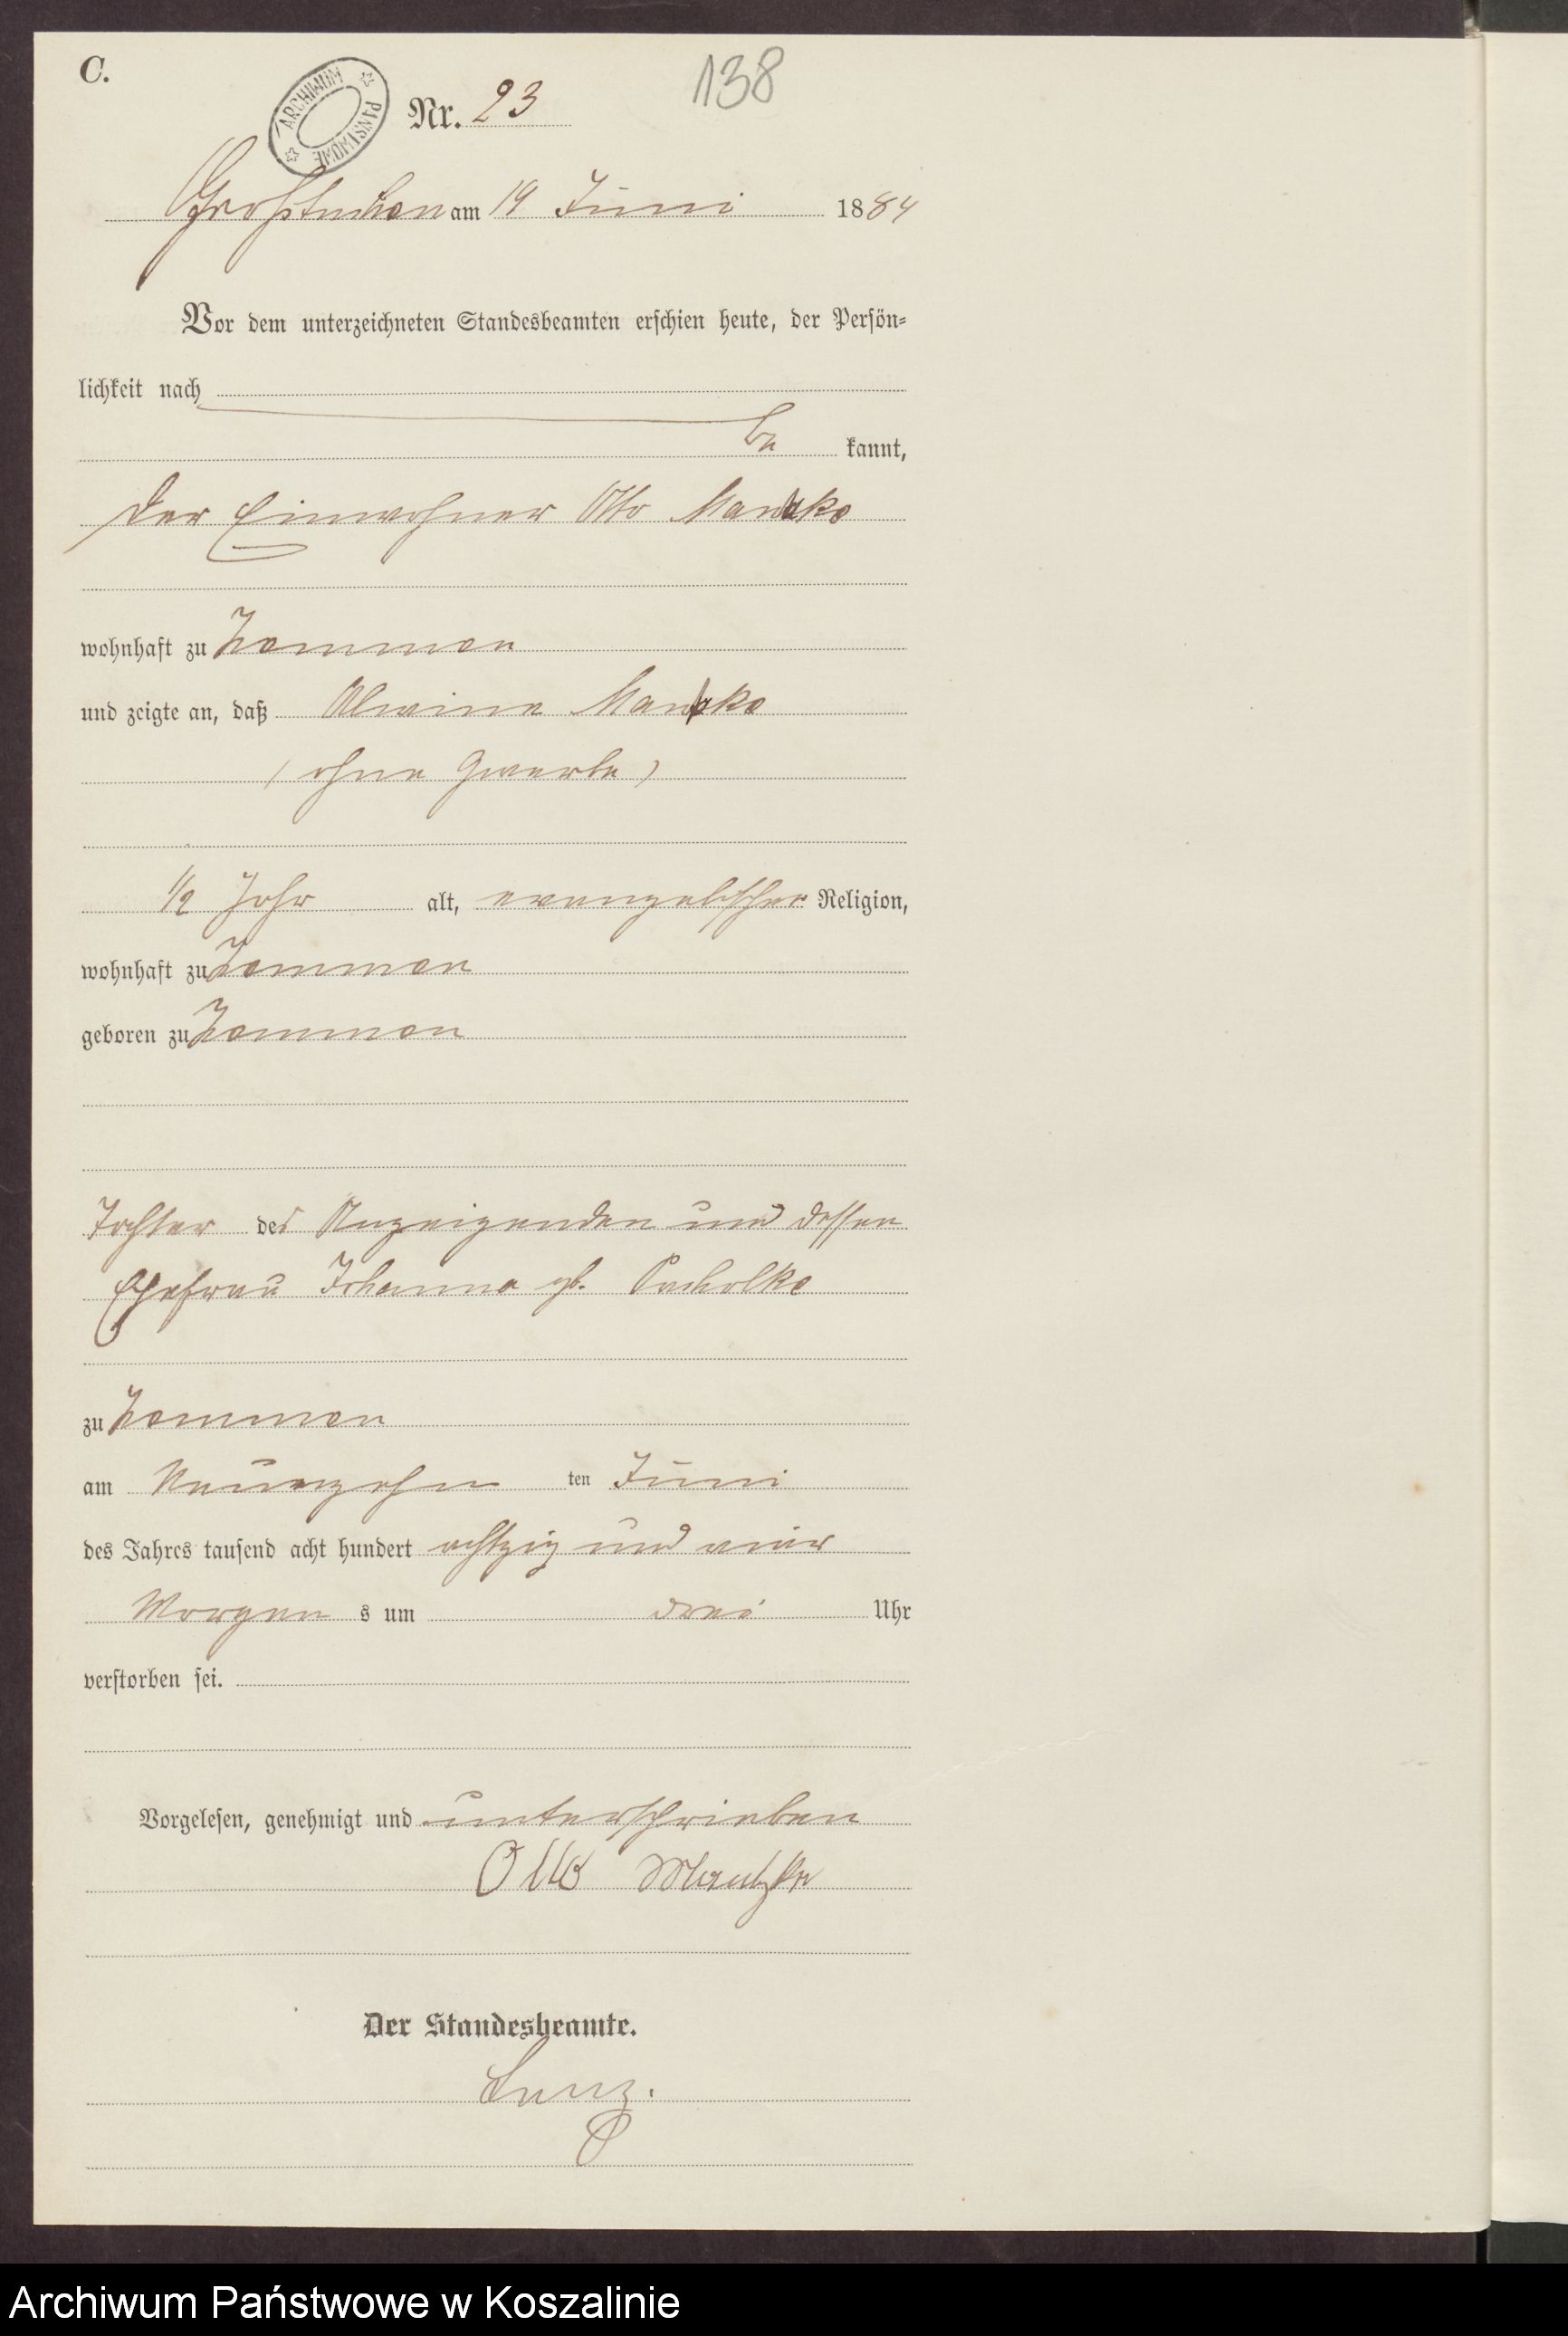 C.
ARCHIWUM PAŃSTWOWE
138
Nr. 23
Großtuchen am 19 Juni 1884
Vor dem unterzeichneten Standesbeamten erschien heute, der Persön-
lichkeit nach
be kannt,
der Einwohner Otto
wohnhaft zu Zemmen
und zeigte an, daß Alwine
(ohne Gewerbe)
1/2 Jahr alt, evangelischer Religion,
wohnhaft zu Zemmen
geboren zu Zemmen
Tochter des Anzeigenden und dessen
Ehefrau Johanna gb.
zu Zemmen
am Neunzehn ten Juni
des Jahres tausend acht hundert achtzig und vier
Morgen s um drei Uhr
verstorben sei.
Vorgelesen, genehmigt und unterschrieben
Otto Mantzke
Der Standesbeamte.
Archiwum Państwowe w Koszalinie